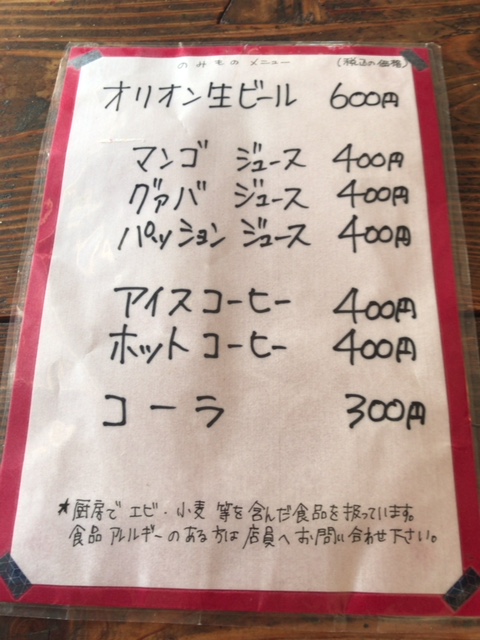 のみもの メニュー (税込の価格)
オリオン生ビール 600円
マンゴ ジュース 400円
グァバ ジュース 400円
パッション ジュース 400円
アイスコーヒー 400円
ホットコーヒー 400円
コーラ 300円
★厨房で エビ・小麦 等を含んだ食品を扱っています。
食品 アレルギーのある方は 店員へ お問い合わせ下さい。